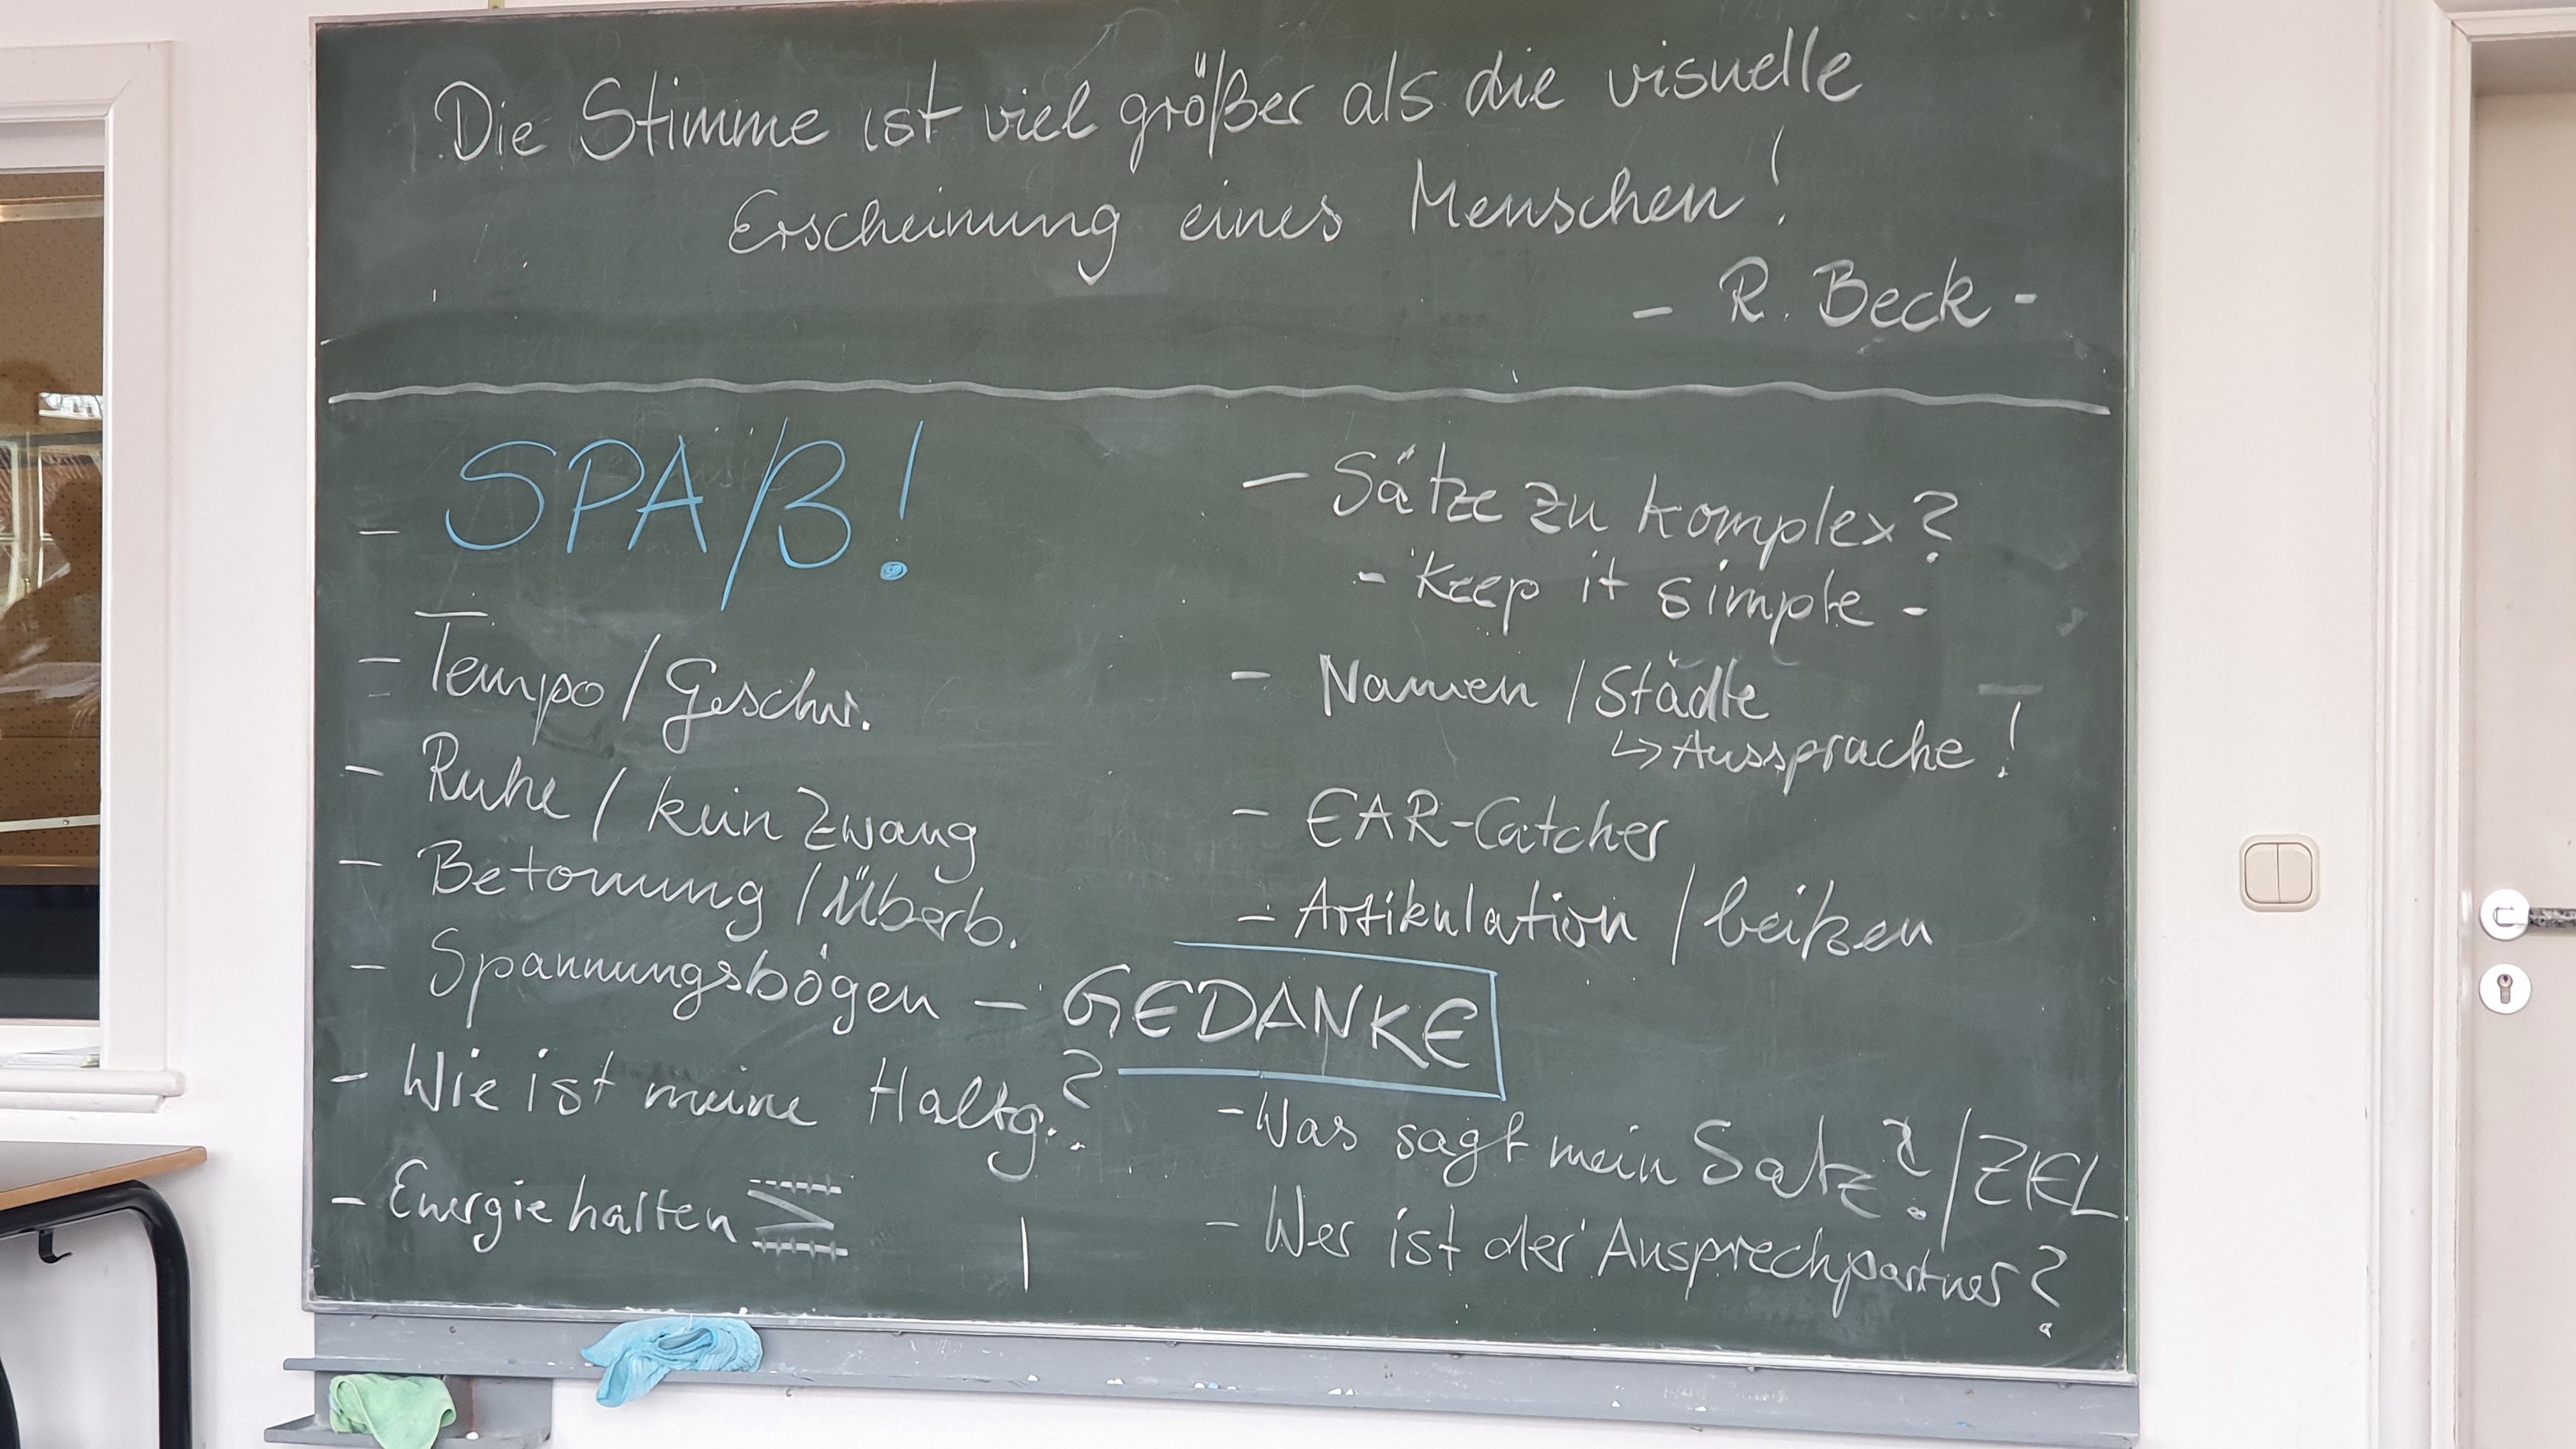 Die Stimme ist viel größer als die visuelle
Erscheinung eines Menschen!
- R. Beck -
- SPAß!
- Tempo / Geschw.
- Ruhe / kein Zwang
- Betonung / Überb.
- Spannungsbögen - GEDANKE
- Wie ist meine Haltg.?
- Energie halten
- Sätze zu komplex?
- Keep it simple -
- Namen / Städte
↳ Aussprache!
- EAR-Catcher
- Artikulation / beißen
- Was sagt mein Satz? / ZIEL
- Wer ist der Ansprechpartner?